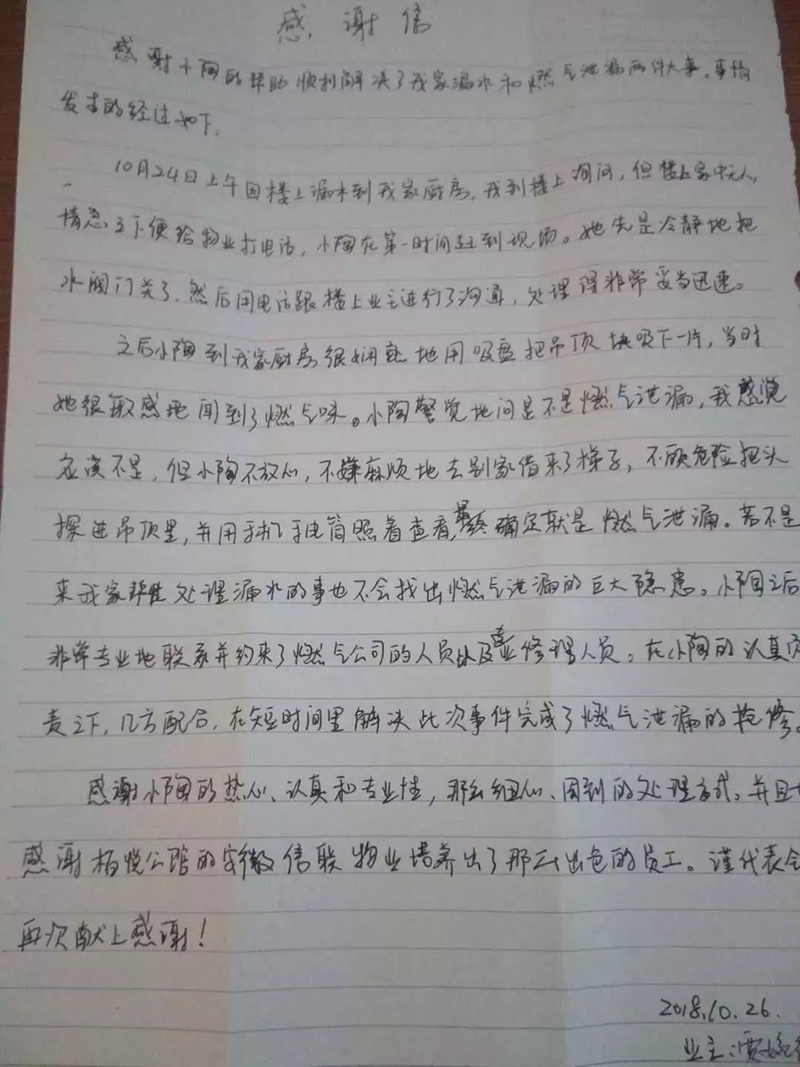 感谢信
感谢小陶的帮助顺利解决了我家漏水和燃气泄漏两件大事。事情
发生的经过如下。
10月24日上午因楼上漏水到我家厨房,我到楼上询问,但楼上家中无人,
情急之下便给物业打电话,小陶在第一时间赶到现场。她先是冷静地把
水阀门关了,然后用电话跟楼上业主进行了沟通,处理得非常妥当迅速。
之后小陶到我家厨房很娴熟地用吸盘把吊顶块吸下一片,当时
她很敏感地闻到了燃气味。小陶警觉地问是不是燃气泄漏,我感觉
应该不是,但小陶不放心,不嫌麻烦地去别家借来了梯子,不顾危险把头
探进吊顶里,并用手机手电筒照着查看,最终确定就是燃气泄漏。若不是
来我家 处理漏水的事也不会找出燃气泄漏的巨大隐患。小陶之后
非常专业地联系并约来了燃气公司的人员以及专业修理人员。在小陶的认真负
责之下,几方配合,在短时间里解决此次事件完成了燃气泄漏的抢修。
感谢小陶的热心、认真和专业性,那么细心、周到的处理方式。并且
感谢柏悦公馆的安徽信联物业培养出了那么出色的员工。谨代表全
再次献上感谢!
2018.10.26.
业主:贾